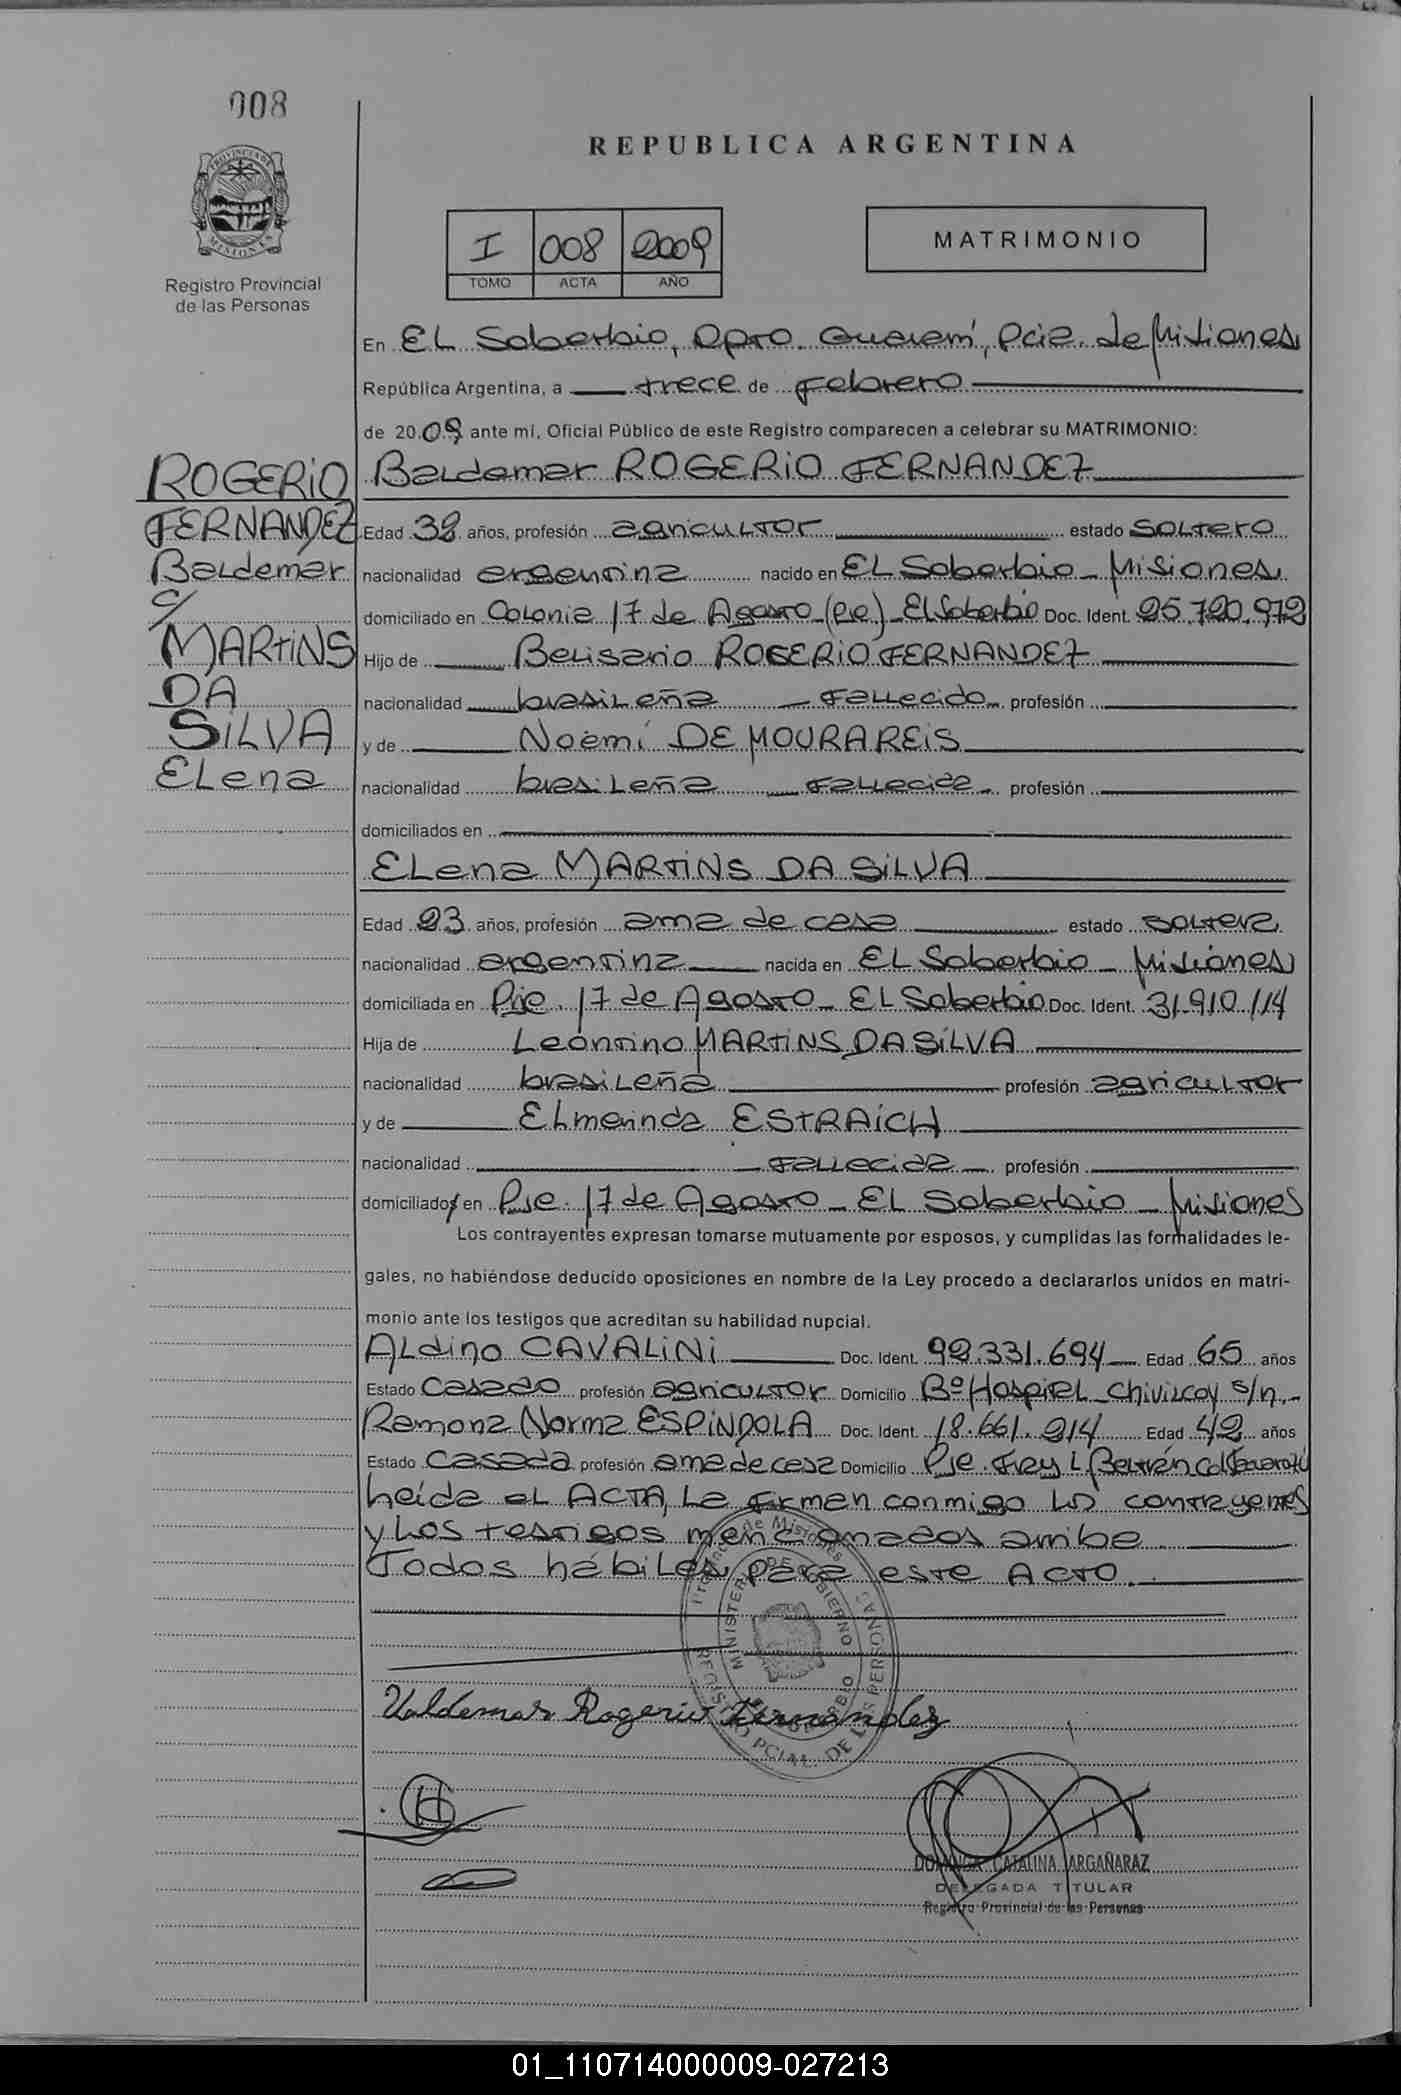 008
PROVINCIA DE
MISIONES
Registro Provincial
de las Personas
REPUBLICA ARGENTINA
I 008 2009
TOMO ACTA AÑO
MATRIMONIO
En EL Soberbio, Dpto. Guaraní, Pcia. de Misiones
República Argentina, a trece de febrero
de 2009 ante mí, Oficial Público de este Registro comparecen a celebrar su MATRIMONIO:
ROGERIO
FERNANDEZ
Baldemar
c/
MARTINS
DA
SILVA
Elena
Baldemar ROGERIO FERNANDEZ
Edad 38 años, profesión agricultor estado soltero
nacionalidad argentina nacido en EL Soberbio - Misiones
domiciliado en Colonia 17 de Agosto (Pje) - El Soberbio Doc. Ident. 25.720.972
Hijo de Belisario ROGERIO FERNANDEZ
nacionalidad brasileña - fallecido - profesión
y de Noemí DE MOURA REIS
nacionalidad brasileña - fallecida - profesión
domiciliados en
Elena MARTINS DA SILVA
Edad 23 años, profesión ama de casa estado soltera
nacionalidad argentina nacida en EL Soberbio - Misiones
domiciliada en Pje. 17 de Agosto - EL Soberbio Doc. Ident. 31.910.114
Hija de Leontino MARTINS DA SILVA
nacionalidad brasileña profesión agricultor
y de Elmerinda ESTRAICH
nacionalidad - fallecida - profesión
domiciliados en Pje. 17 de Agosto - EL Soberbio - Misiones
Los contrayentes expresan tomarse mutuamente por esposos, y cumplidas las formalidades le-
gales, no habiéndose deducido oposiciones en nombre de la Ley procedo a declararlos unidos en matri-
monio ante los testigos que acreditan su habilidad nupcial.
Aldino CAVALINI Doc. Ident. 92.331.694 Edad 65 años
Estado Casado profesión agricultor Domicilio Bº Hospital - Chivilcoy s/n.-
Ramona Norma ESPINDOLA Doc. Ident. 18.661.214 Edad 42 años
Estado Casada profesión ama de casa Domicilio Pje. Fray L. Beltrán Col
Leída el ACTA, la firman conmigo los contrayentes
y los testigos mencionados arriba
Todos hábiles para este Acto.
Provincia de Misiones
MINISTERIO DE GOBIERNO
REGISTRO PCIAL. DE LAS PERSONAS
Valdemar Rogerio Fernandez
DOMINGA CATALINA ARGAÑARAZ
DELEGADA TITULAR
Registro Provincial de las Personas
01_110714000009-027213